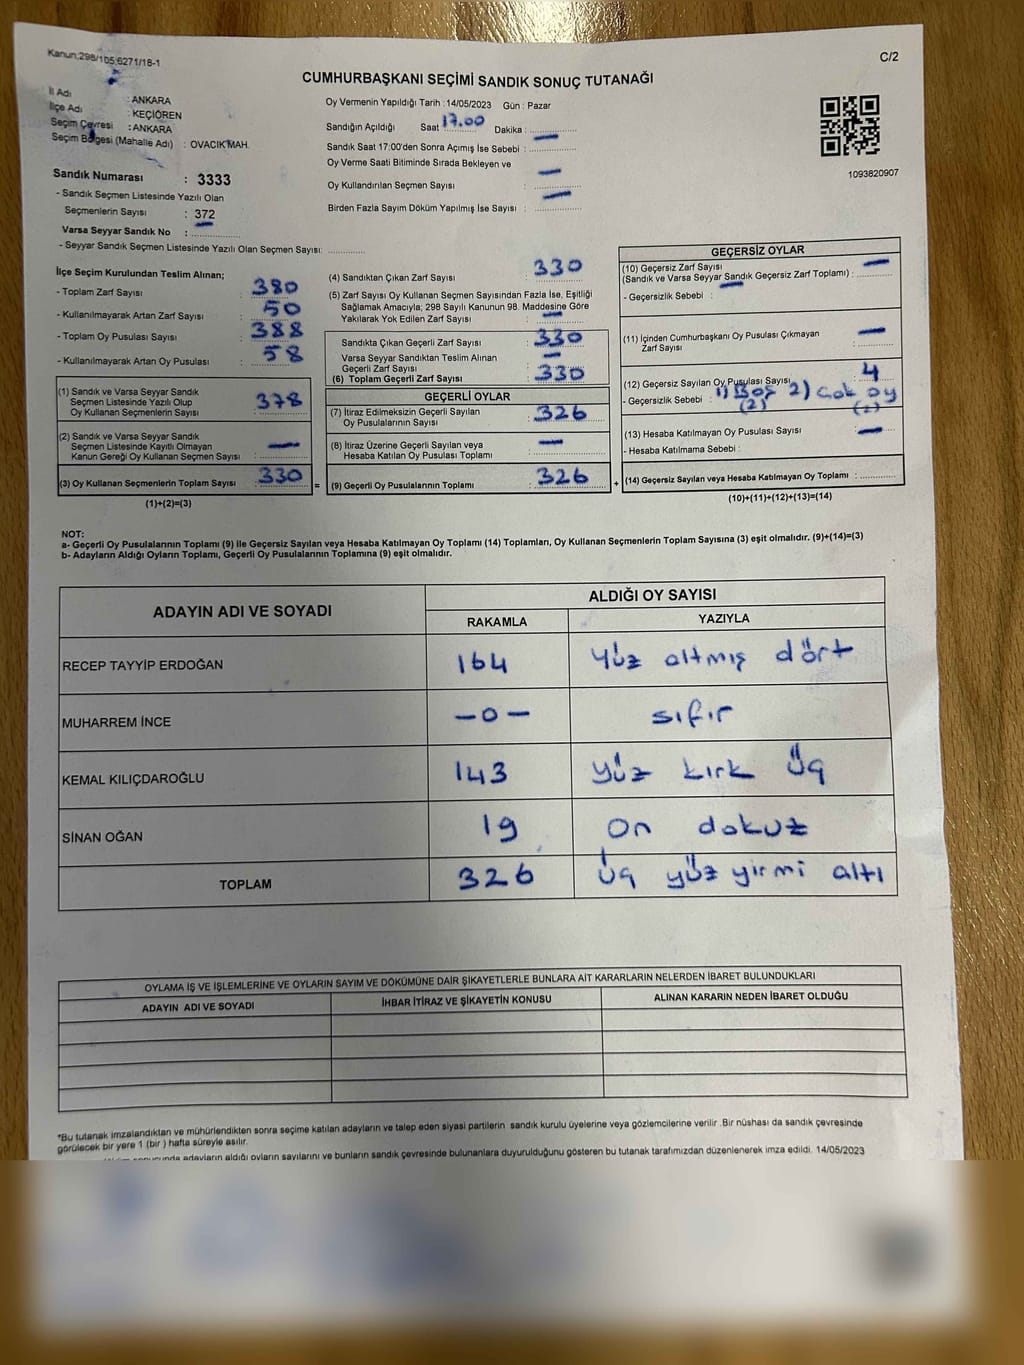 Kanun:298/105,6271/18-1
C/2
CUMHURBAŞKANI SEÇİMİ SANDIK SONUÇ TUTANAĞI
İl Adı : ANKARA
İlçe Adı : KEÇİÖREN
Seçim Çevresi : ANKARA
Seçim Bölgesi (Mahalle Adı) : OVACIK MAH.
Sandık Numarası : 3333
- Sandık Seçmen Listesinde Yazılı Olan
Seçmenlerin Sayısı : 372
Varsa Seyyar Sandık No : —
- Seyyar Sandık Seçmen Listesinde Yazılı Olan Seçmen Sayısı:
Oy Vermenin Yapıldığı Tarih :14/05/2023 Gün : Pazar
Sandığın Açıldığı Saat 17.00 Dakika :
Sandık Saat 17:00'den Sonra Açımış İse Sebebi : —
Oy Verme Saati Bitiminde Sırada Bekleyen ve
Oy Kullandırılan Seçmen Sayısı : —
Birden Fazla Sayım Döküm Yapılmış İse Sayısı : —
1093820907
İlçe Seçim Kurulundan Teslim Alınan;
- Toplam Zarf Sayısı : 380
- Kullanılmayarak Artan Zarf Sayısı : 50
- Toplam Oy Pusulası Sayısı : 388
- Kullanılmayarak Artan Oy Pusulası : 58
(1) Sandık ve Varsa Seyyar Sandık
Seçmen Listesinde Yazılı Olup
Oy Kullanan Seçmenlerin Sayısı : 378
(2) Sandık ve Varsa Seyyar Sandık
Seçmen Listesinde Kayıtlı Olmayan
Kanun Gereği Oy Kullanan Seçmen Sayısı : —
(3) Oy Kullanan Seçmenlerin Toplam Sayısı : 330
(1)+(2)=(3)
=
(4) Sandıktan Çıkan Zarf Sayısı : 330
(5) Zarf Sayısı Oy Kullanan Seçmen Sayısından Fazla İse, Eşitliği
Sağlamak Amacıyla; 298 Sayılı Kanunun 98. Maddesine Göre
Yakılarak Yok Edilen Zarf Sayısı : —
Sandıkta Çıkan Geçerli Zarf Sayısı : 330
Varsa Seyyar Sandıktan Teslim Alınan
Geçerli Zarf Sayısı : —
(6) Toplam Geçerli Zarf Sayısı : 330
GEÇERLİ OYLAR
(7) İtiraz Edilmeksizin Geçerli Sayılan
Oy Pusulasının Sayısı : 326
(8) İtiraz Üzerine Geçerli Sayılan veya
Hesaba Katılan Oy Pusulası Toplamı : —
(9) Geçerli Oy Pusulalarının Toplamı : 326
+
GEÇERSİZ OYLAR
(10) Geçersiz Zarf Sayısı
(Sandık ve Varsa Seyyar Sandık Geçersiz Zarf Toplamı) : —
- Geçersizlik Sebebi : —
(11) İçinden Cumhurbaşkanı Oy Pusulası Çıkmayan
Zarf Sayısı : —
(12) Geçersiz Sayılan Oy Pusulası Sayısı : 4
- Geçersizlik Sebebi : 1) Boş 2) Çok oy
(2) (2)
(13) Hesaba Katılmayan Oy Pusulası Sayısı : —
- Hesaba Katılmama Sebebi :
(14) Geçersiz Sayılan veya Hesaba Katılmayan Oy Toplamı :
(10)+(11)+(12)+(13)=(14)
NOT:
a- Geçerli Oy Pusulalarının Toplamı (9) ile Geçersiz Sayılan veya Hesaba Katılmayan Oy Toplamı (14) Toplamları, Oy Kullanan Seçmenlerin Toplam Sayısına (3) eşit olmalıdır. (9)+(14)=(3)
b- Adayların Aldığı Oyların Toplamı, Geçerli Oy Pusulalarının Toplamına (9) eşit olmalıdır.
ADAYIN ADI VE SOYADI
ALDIĞI OY SAYISI
RAKAMLA YAZIYLA
RECEP TAYYİP ERDOĞAN 164 yüz altmış dört
MUHARREM İNCE —0— sıfır
KEMAL KILIÇDAROĞLU 143 yüz kırk üç
SİNAN OĞAN 19 on dokuz
TOPLAM 326 üç yüz yirmi altı
OYLAMA İŞ VE İŞLEMLERİNE VE OYLARIN SAYIM VE DÖKÜMÜNE DAİR ŞİKAYETLERLE BUNLARA AİT KARARLARIN NELERDEN İBARET BULUNDUKLARI
ADAYIN ADI VE SOYADI İHBAR İTİRAZ VE ŞİKAYETİN KONUSU ALINAN KARARIN NEDEN İBARET OLDUĞU
*Bu tutanak imzalandıktan ve mühürlendikten sonra seçime katılan adayların ve talep eden siyasi partilerin sandık kurulu üyelerine veya gözlemcilerine verilir .Bir nüshası da sandık çevresinde
görülecek bir yere 1 (bir ) hafta süreyle asılır.
adayların aldığı oyların sayılarını ve bunların sandık çevresinde bulunanlara duyurulduğunu gösteren bu tutanak tarafımızdan düzenlenerek imza edildi. 14/05/2023